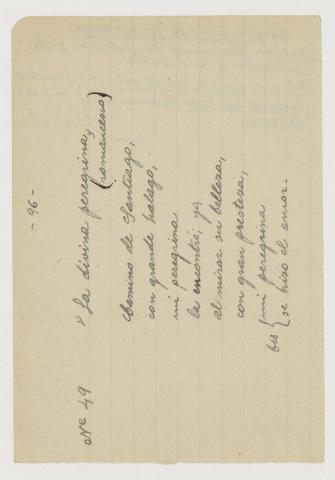 - 96 -
Nº 49
"La divina peregrina"
(romancesco)
Camino de Santiago,
con grande halago,
mi peregrina
la encontré; ya
al mirar su belleza,
con gran presteza,
bis { mi peregrina
se hizo el amor.